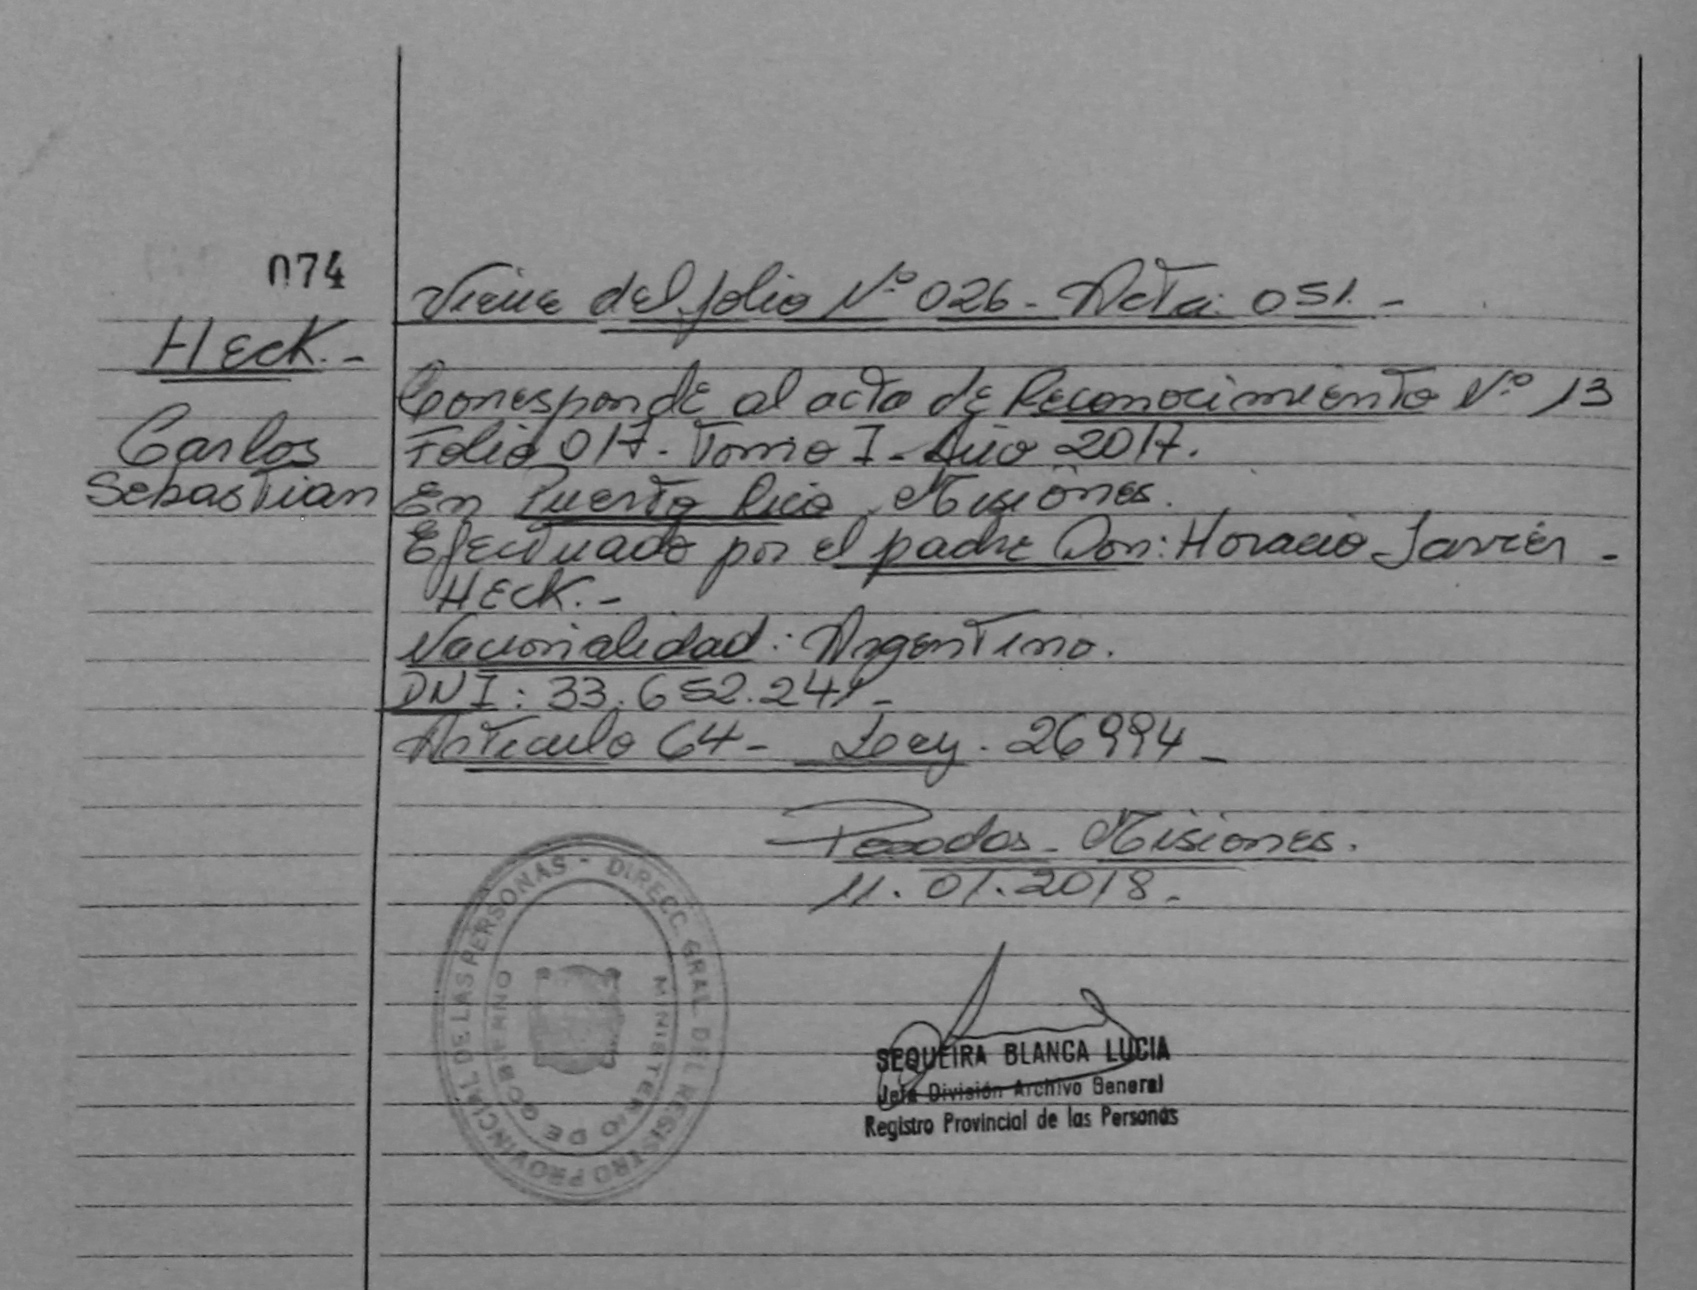 074
HEck.-
Carlos
Sebastian
Viene del folio Nº 026 - Acta: 051. -
Corresponde al acta de Reconocimiento Nº 13
Folio 017. Tomo I - Año 2017.
En Puerto Rico, Misiones.
Efectuado por el padre Don: Horacio Javier -
HECK. -
Nacionalidad: Argentino.
DNI: 33.652.241 -
Articulo 64 - Ley. 26994 -
Posadas - Misiones.
11.01.2018 -
DIRECC. GRAL. DEL REGISTRO PROVINCIAL DE LAS PERSONAS -
MINISTERIO DE GOBIERNO
SEQUEIRA BLANCA LUCIA
Jefe División Archivo General
Registro Provincial de las Personas